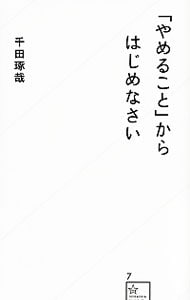 「やめること」から
はじめなさい
千田琢哉
7